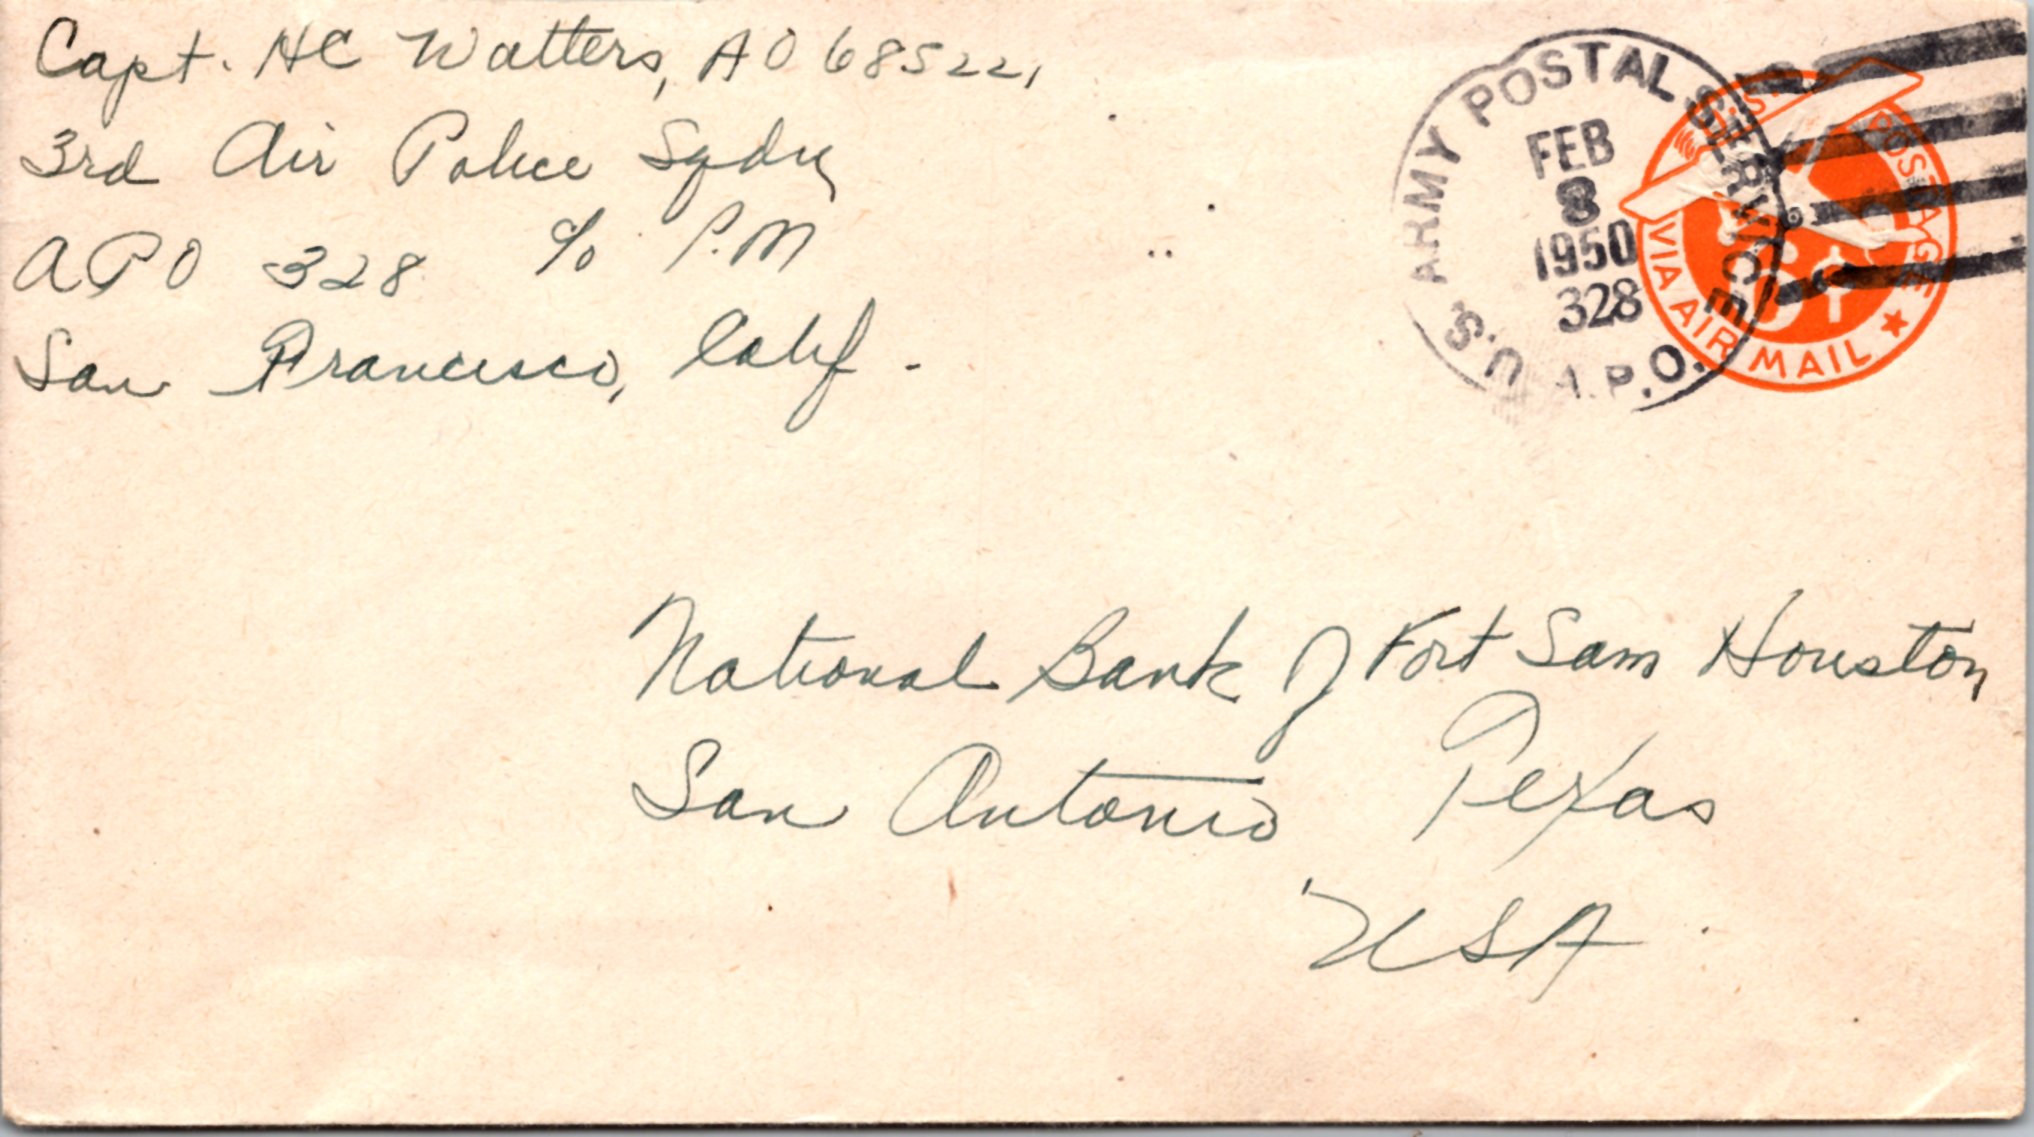 Capt. HC Watters, AO 685221
3rd Air Police Sqdn
APO 328 c/o P.M
San Francisco, Calif.
U.S. ARMY POSTAL SERVICE
FEB
8
1950
328
A.P.O.
POSTAGE
VIA AIR MAIL
6¢
National Bank of Fort Sam Houston
San Antonio Texas
USA